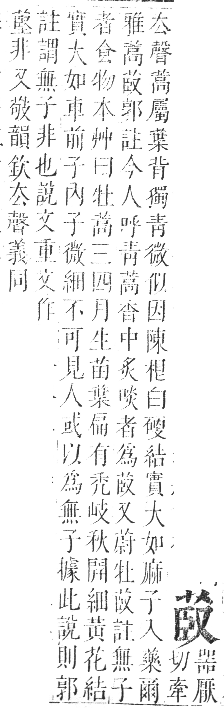 菣
器厭
切牽
厺聲蒿屬葉背獨青微似因陳柜白硬結實大如麻子入藥爾
雅蒿菣郭註今人呼青蒿香中炙啖者為菣又蔚牡菣註無子
者食物本艸曰牡蒿三四月生苗葉偏有禿岐秋開細黃花結
實大如車前子內子微細不可見人或以為無子據此說則郭
註謂無子非也說文重文作
非又敬韻欽厺聲義同